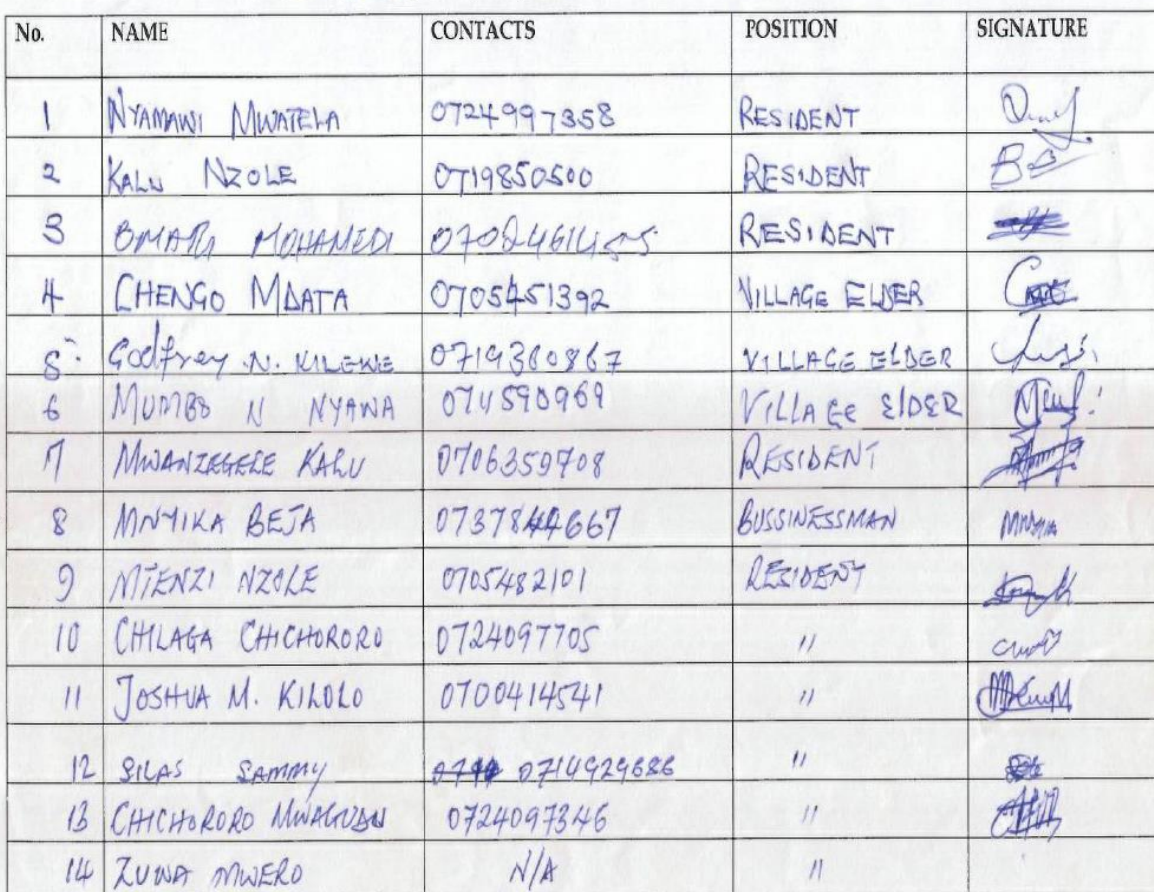 No. NAME CONTACTS POSITION SIGNATURE
1 NYAMAWI MWATELA 0724997358 RESIDENT
2 KALU NZOLE 0719850500 RESIDENT
3 MOHAMEDI RESIDENT
4 CHENGO MDATA 0705451392 VILLAGE ELDER
5 Godfrey N. KILEWE 0719360867 VILLAGE ELDER
6 MUMBO N NYAWA VILLAGE ELDER
7 MWANZEGELE KALU 0706359708 RESIDENT
8 MNYIKA BEJA 0737844667 BUSSINESSMAN
9 MTENZI NZOLE 0705482101 RESIDENT
10 CHILAGA CHICHORORO 0724097705 "
11 JOSHUA M. KILOLO 0700414541 "
12 SILAS SAMMY 0714929686 "
13 CHICHORORO 0724097346 "
14 ZUWA MWERO N/A "